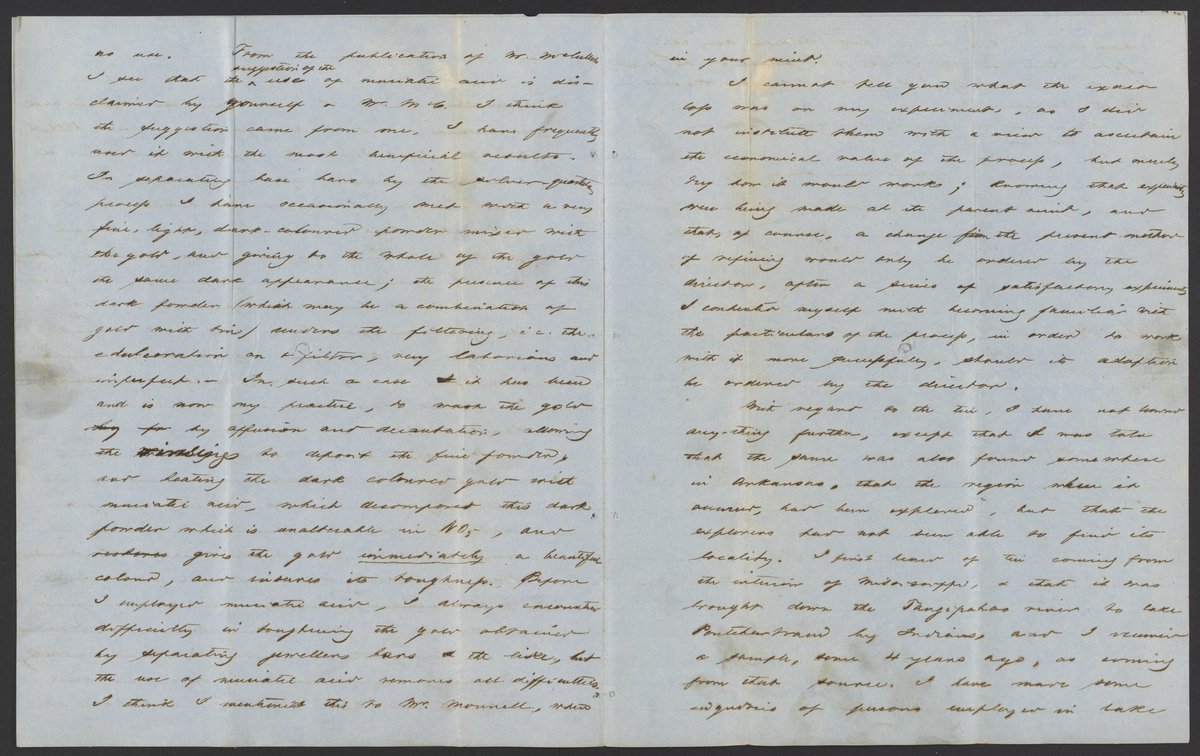 as use. From the publication of Mr. McCulloh
suggestion of the
I see that the use of muriatic acid is dis-
claimed by yourself & Mr. McC. I think
the suggestion came from me. I have frequently
used it with the most beneficial results.
In separating base bars by the silver-quartering
process I have occasionally met with a very
fine, light, dark-coloured powder mixed with
the gold, and giving to the whole of the gold
the same dark appearance; the presence of this
dark powder (which may be a combination of
gold with tin) renders the filtering, i.e. the
edulcoration on a filter, very laborious and
imperfect. - In such a case it has been
and is now my practice, to wash the gold
by affusion and decantation, allowing
the to deposit the fine powder,
and heating the dark coloured gold with
muriatic acid, which decomposes this dark
powder which is unalterable in NO5, and
restores gives the gold immediately a beautiful
colour, and insures its toughness. Before
I employed muriatic acid, I always encountered
difficulty in toughening the gold obtained
by separating jewellers bars & the like, but
the use of muriatic acid removes all difficulties.
I think I mentioned this to Mr. , when
in your mint.
I cannot tell you what the exact
loss was on my experiments, as I did
not institute them with a view to ascertain
the economical value of the process, but merely
try how it would work; knowing that experiments
were being made at the parent mint, and
that, of course, a change from the present method
of refining would only be ordered by the
director, after a series of satisfactory experiments
I contented myself with becoming familiar with
the particulars of the process, in order to work
with it more successfully, should its adoption
be ordered by the director.
With regard to the tin, I have not learned
anything further, except that I was told
that the same was also found somewhere
in Arkansas, that the region where it
occurred, had been explored, but that the
explorers had not been able to find its
locality. I first heard of tin coming from
the interior of Mississippi, & that it was
brought down the Tangipahoa river to lake
Pontchartrain by Indians, and I received
a sample, some 4 years ago, as coming
from that source. I have made some
inquiries of persons employed in lake